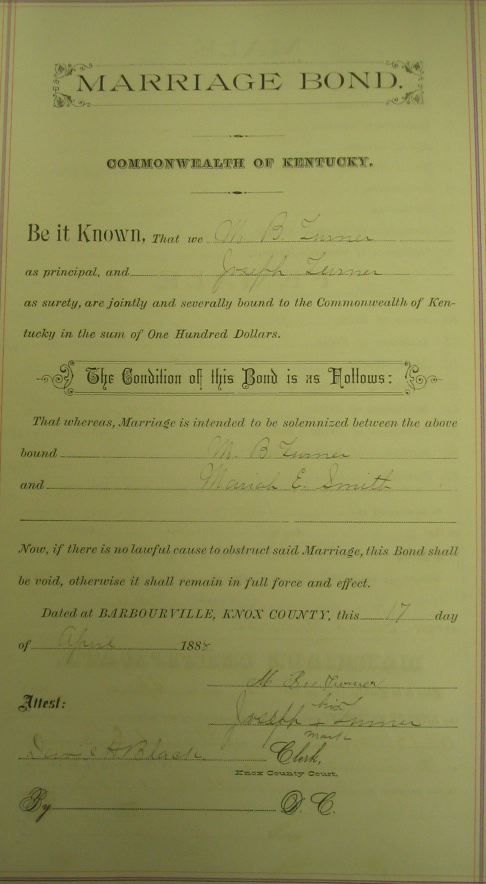 MARRIAGE BOND.
COMMONWEALTH OF KENTUCKY.
Be it Known, That we M. B. Turner
as principal, and Joseph Turner
as surety, are jointly and severally bound to the Commonwealth of Ken-
tucky in the sum of One Hundred Dollars.
The Condition of this Bond is as Follows:
That whereas, Marriage is intended to be solemnized between the above
bound M. B Turner
and Mariah E. Smith
Now, if there is no lawful cause to obstruct said Marriage, this Bond shall
be void, otherwise it shall remain in full force and effect.
Dated at BARBOURVILLE, KNOX COUNTY, this 17 day
of April 188
M B Turner
Attest:
his
Joseph x Turner
mark
Black Clerk,
Knox County Court.
By D. C.